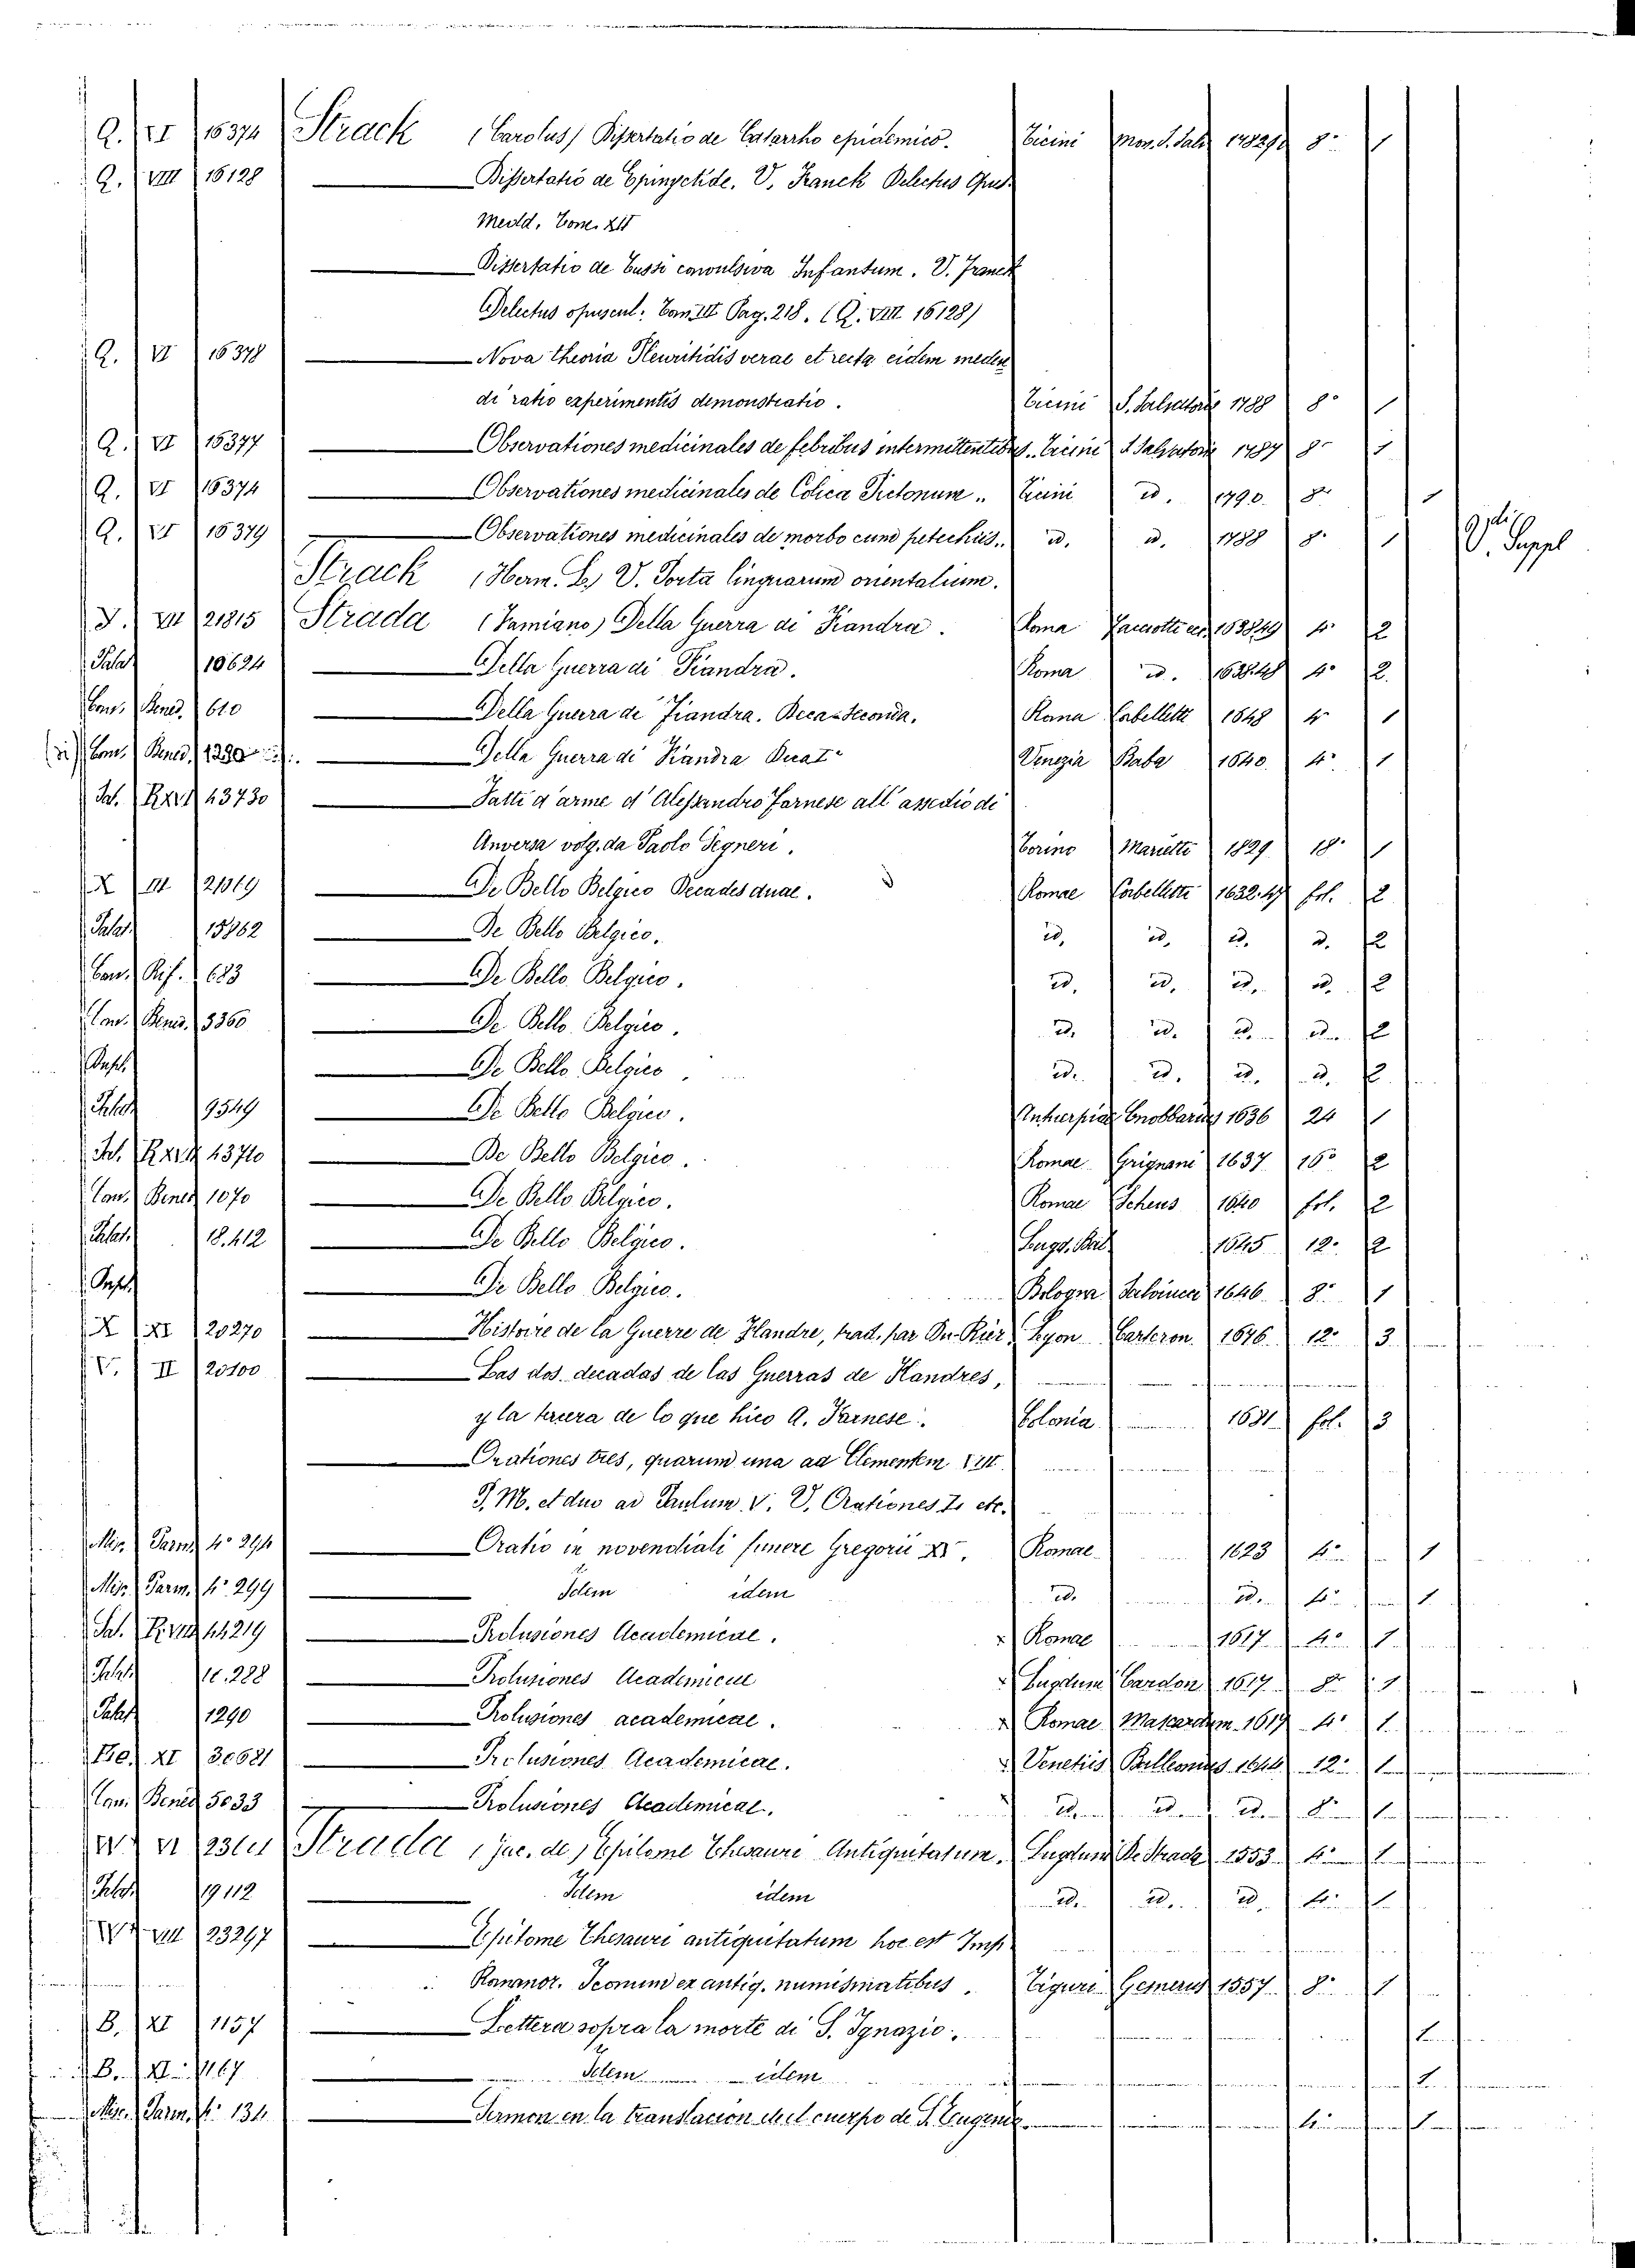 Q. VI 15374 Strack (Carolus) Dissertatio de Catarrho epidemico. Ticini Mon. S. Salv. 8° 1
Q. VIII 16128 Dissertatio de Epinyctide, V. Franck Delectus Opus.
Medd. Tom. XII
Dissertatio de Tussi convulsiva Infantum. V. Franck
Delectus opuscul: Tom III Pag. 218. (Q. VIII 16128)
Q. VI 15378 Nova theoria Pleuritidis verae et recta eidem meden
di ratio experimentis demonstratio. Ticini S. Salvatoris 1788 8° 1
Q. VI 15377 Observationes medicinales de febribus intermittentibus. Ticini S. Salvatoris 1787 8° 1
Q. VI 15374 Observationes medicinales de Colica Pictonum. Ticini id. 1790. 8° 1
Q. VI 15379 Observationes medicinales de morbo cum petechiis. id. id. 1788 8° 1 V. Suppl
Strack (Herm. L.) V. Porta linguarum orientalium.
VII 21815 Strada (Famiano) Della Guerra di Fiandra. Roma 4° 2
Palat 10624 Della Guerra di Fiandra. Roma id. 1638.48 4° 2.
Conv. Bened. 610 Della Guerra di Fiandra. Deca Seconda. Roma Corbellette 1648 4° 1
Conv. Bened. Della Guerra di Fiandra Venezia Baba 1640. 4° 1
43730 Fatti d'arme d'Alessandro Farnese all'assedio di
Anversa volg. da Paolo Segneri. Torino Marietti 1829 18° 1
X III De Bello Belgico Decades duae. Romae Corbelletti 1632.47 fol. 2
Palat. De Bello Belgico. id. id. id. id. 2
Conv. Rif. 683 De Bello Belgico. id. id. id. id. 2
Conv. Bened. 3360 De Bello Belgico. id. id. id. id. 2
De Bello Belgico. id. id. id. id. 2
Palat 9549 De Bello Belgico. Antuerpiae Cnobbarius 1636 24 1
43710 De Bello Belgico. Romae Grignani 1637 16° 2
Conv. Bened 1070 De Bello Belgico. Romae Scheus 1640 fol. 2
Palat. 18.412 De Bello Belgico. Lugd. Bat. 1645 12° 2
De Bello Belgico. Bologna 1646 8° 1
X XI 20270 Histoire de la Guerre de Flandre, trad. par Du-Rier Lyon Carteron. 1676. 12° 3.
V. II 20100 Las dos decadas de las Guerras de Flandres,
y la tercera de lo que hico A. Farnese. Colonia 1681 fol. 3
Orationes tres, quarum una ad Clementem VIII
P. M. et duo ad Paulum V. V. Orationes etc.
Mis. Parm. 4° 294 Oratio in novendiali funere Gregorii XV. Romae 1623 4° 1
Mis. Parm. 4° 299 Idem idem id. id. 4° 1
44219 Prolusiones Academicae. Romae 1617. 4° 1.
Palat Prolusiones Academicae Lugduni Cardon 1617. 8° 1
Palat 1290 Prolusiones academicae. Romae Mascardum. 1617 4° 1.
XI 30681 Prolusiones Academicae. Venetiis 1644 12° 1
Conv. Bened 5033 Prolusiones Academicae. id. id. id. 8° 1
VI Strada (Jac. de) Epitome Thesauri Antiquitatum. Lugduni De Strada 1553 4° 1
Palat 19112 Idem idem id. id. id. 4° 1
VIII 23297 Epitome Thesauri antiquitatum hoc est Imp.
Romanor. Iconum ex antiq. numismatibus. Tiguri Gesnerus 1557. 8° 1
B. XI 1157 Lettera sopra la morte di S. Ignazio. 1
B. XI 1167 Idem idem 1
Misc. Parm. 4° 134 Sermon en la translacion del cuerpo de S. Eugenio 4° 1